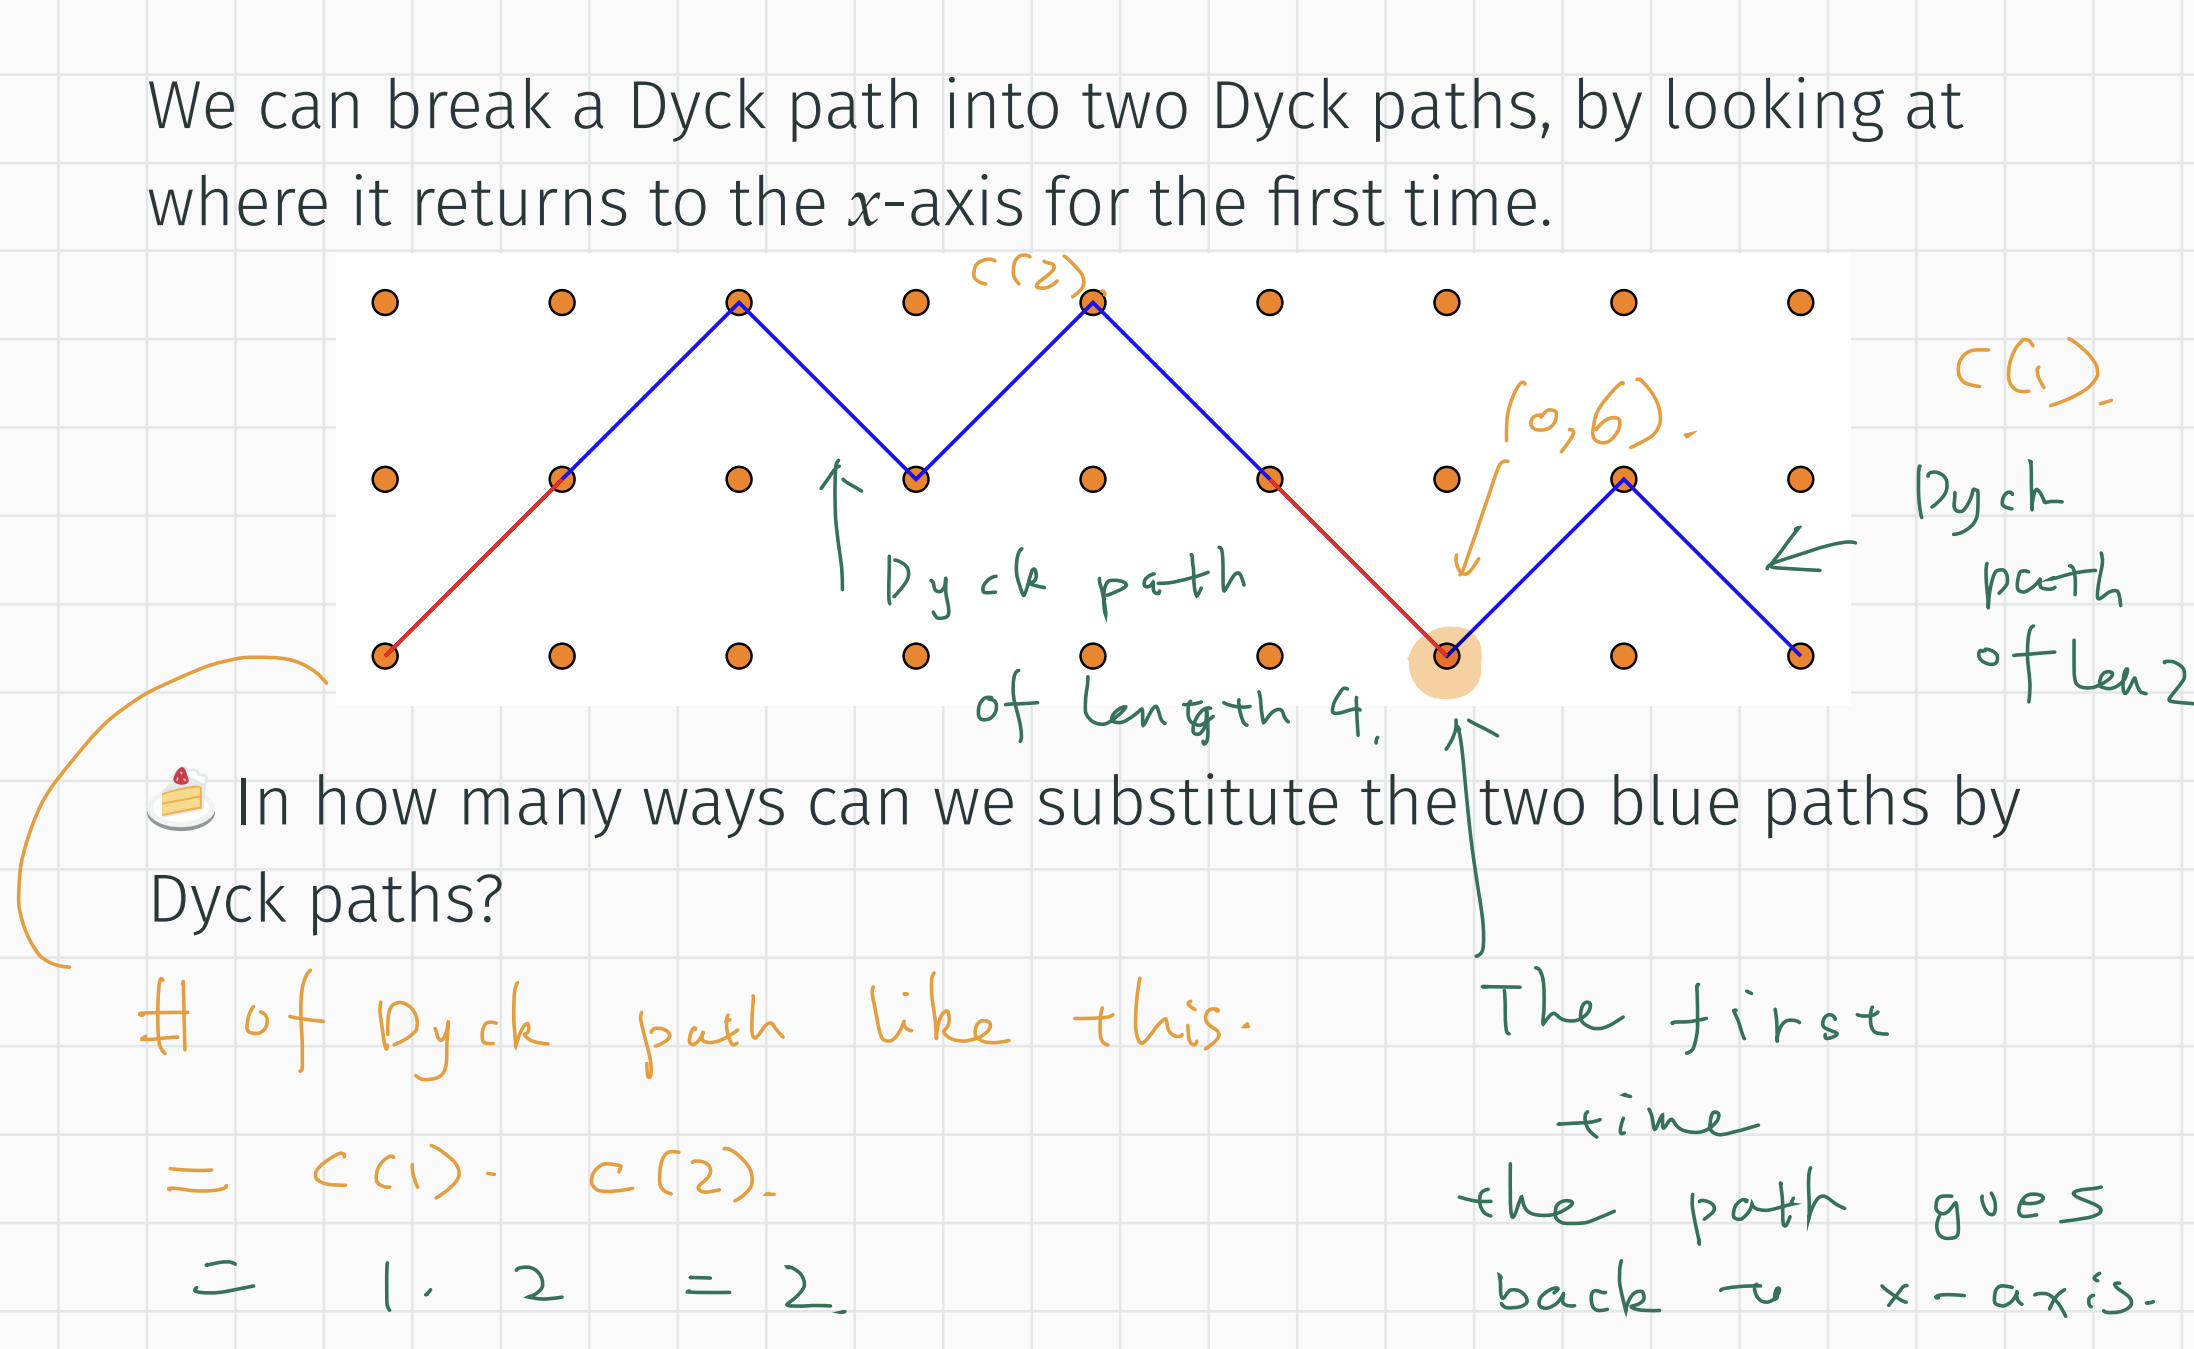 We can break a Dyck path into two Dyck paths, by looking at
where it returns to the x-axis for the first time.
C(2).
C(1).
(0,6).
Dyck
path
of len 2
Dyck path
of length 4.
🍰 In how many ways can we substitute the two blue paths by
Dyck paths?
# of Dyck path like this.
= C(1) · C(2).
= 1 · 2 = 2.
The first
time
the path goes
back to x-axis.